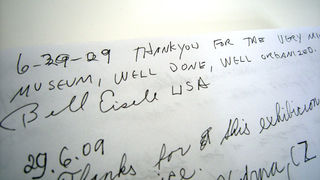 6-29-09 THANKYOU FOR THE VERY
MUSEUM, WELL DONE, WELL ORGANIZED.
Bill Eisele USA
29.6.09
Thanks for this exhibicion
CZ